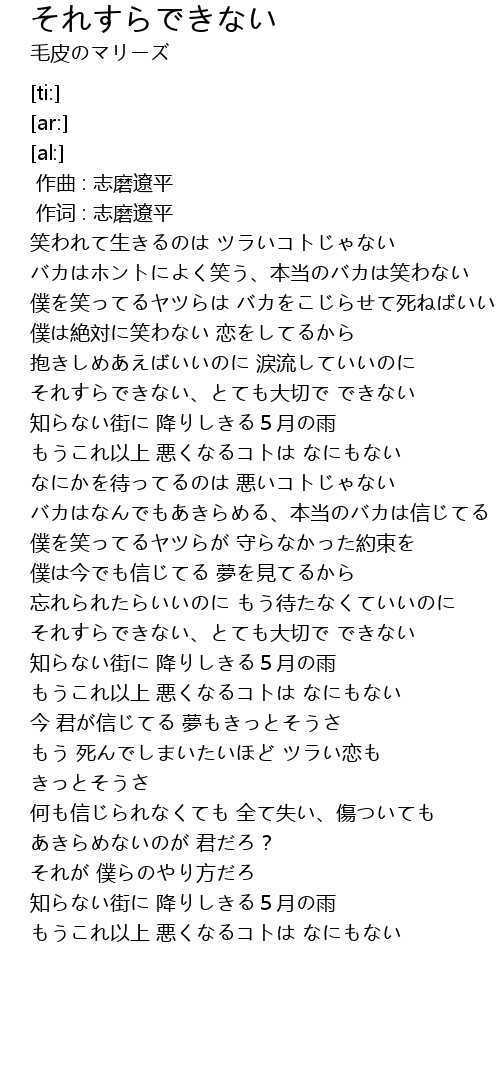 それすらできない
毛皮のマリーズ
[ti:]
[ar:]
[al:]
作曲 : 志磨遼平
作词 : 志磨遼平
笑われて生きるのは ツラいコトじゃない
バカはホントによく笑う、本当のバカは笑わない
僕を笑ってるヤツらは バカをこじらせて死ねばいい
僕は絶対に笑わない 恋をしてるから
抱きしめあえばいいのに 涙流していいのに
それすらできない、とても大切で できない
知らない街に 降りしきる５月の雨
もうこれ以上 悪くなるコトは なにもない
なにかを待ってるのは 悪いコトじゃない
バカはなんでもあきらめる、本当のバカは信じてる
僕を笑ってるヤツらが 守らなかった約束を
僕は今でも信じてる 夢を見てるから
忘れられたらいいのに もう待たなくていいのに
それすらできない、とても大切で できない
知らない街に 降りしきる５月の雨
もうこれ以上 悪くなるコトは なにもない
今 君が信じてる 夢もきっとそうさ
もう 死んでしまいたいほど ツラい恋も
きっとそうさ
何も信じられなくても 全て失い、傷ついても
あきらめないのが 君だろ？
それが 僕らのやり方だろ
知らない街に 降りしきる５月の雨
もうこれ以上 悪くなるコトは なにもない